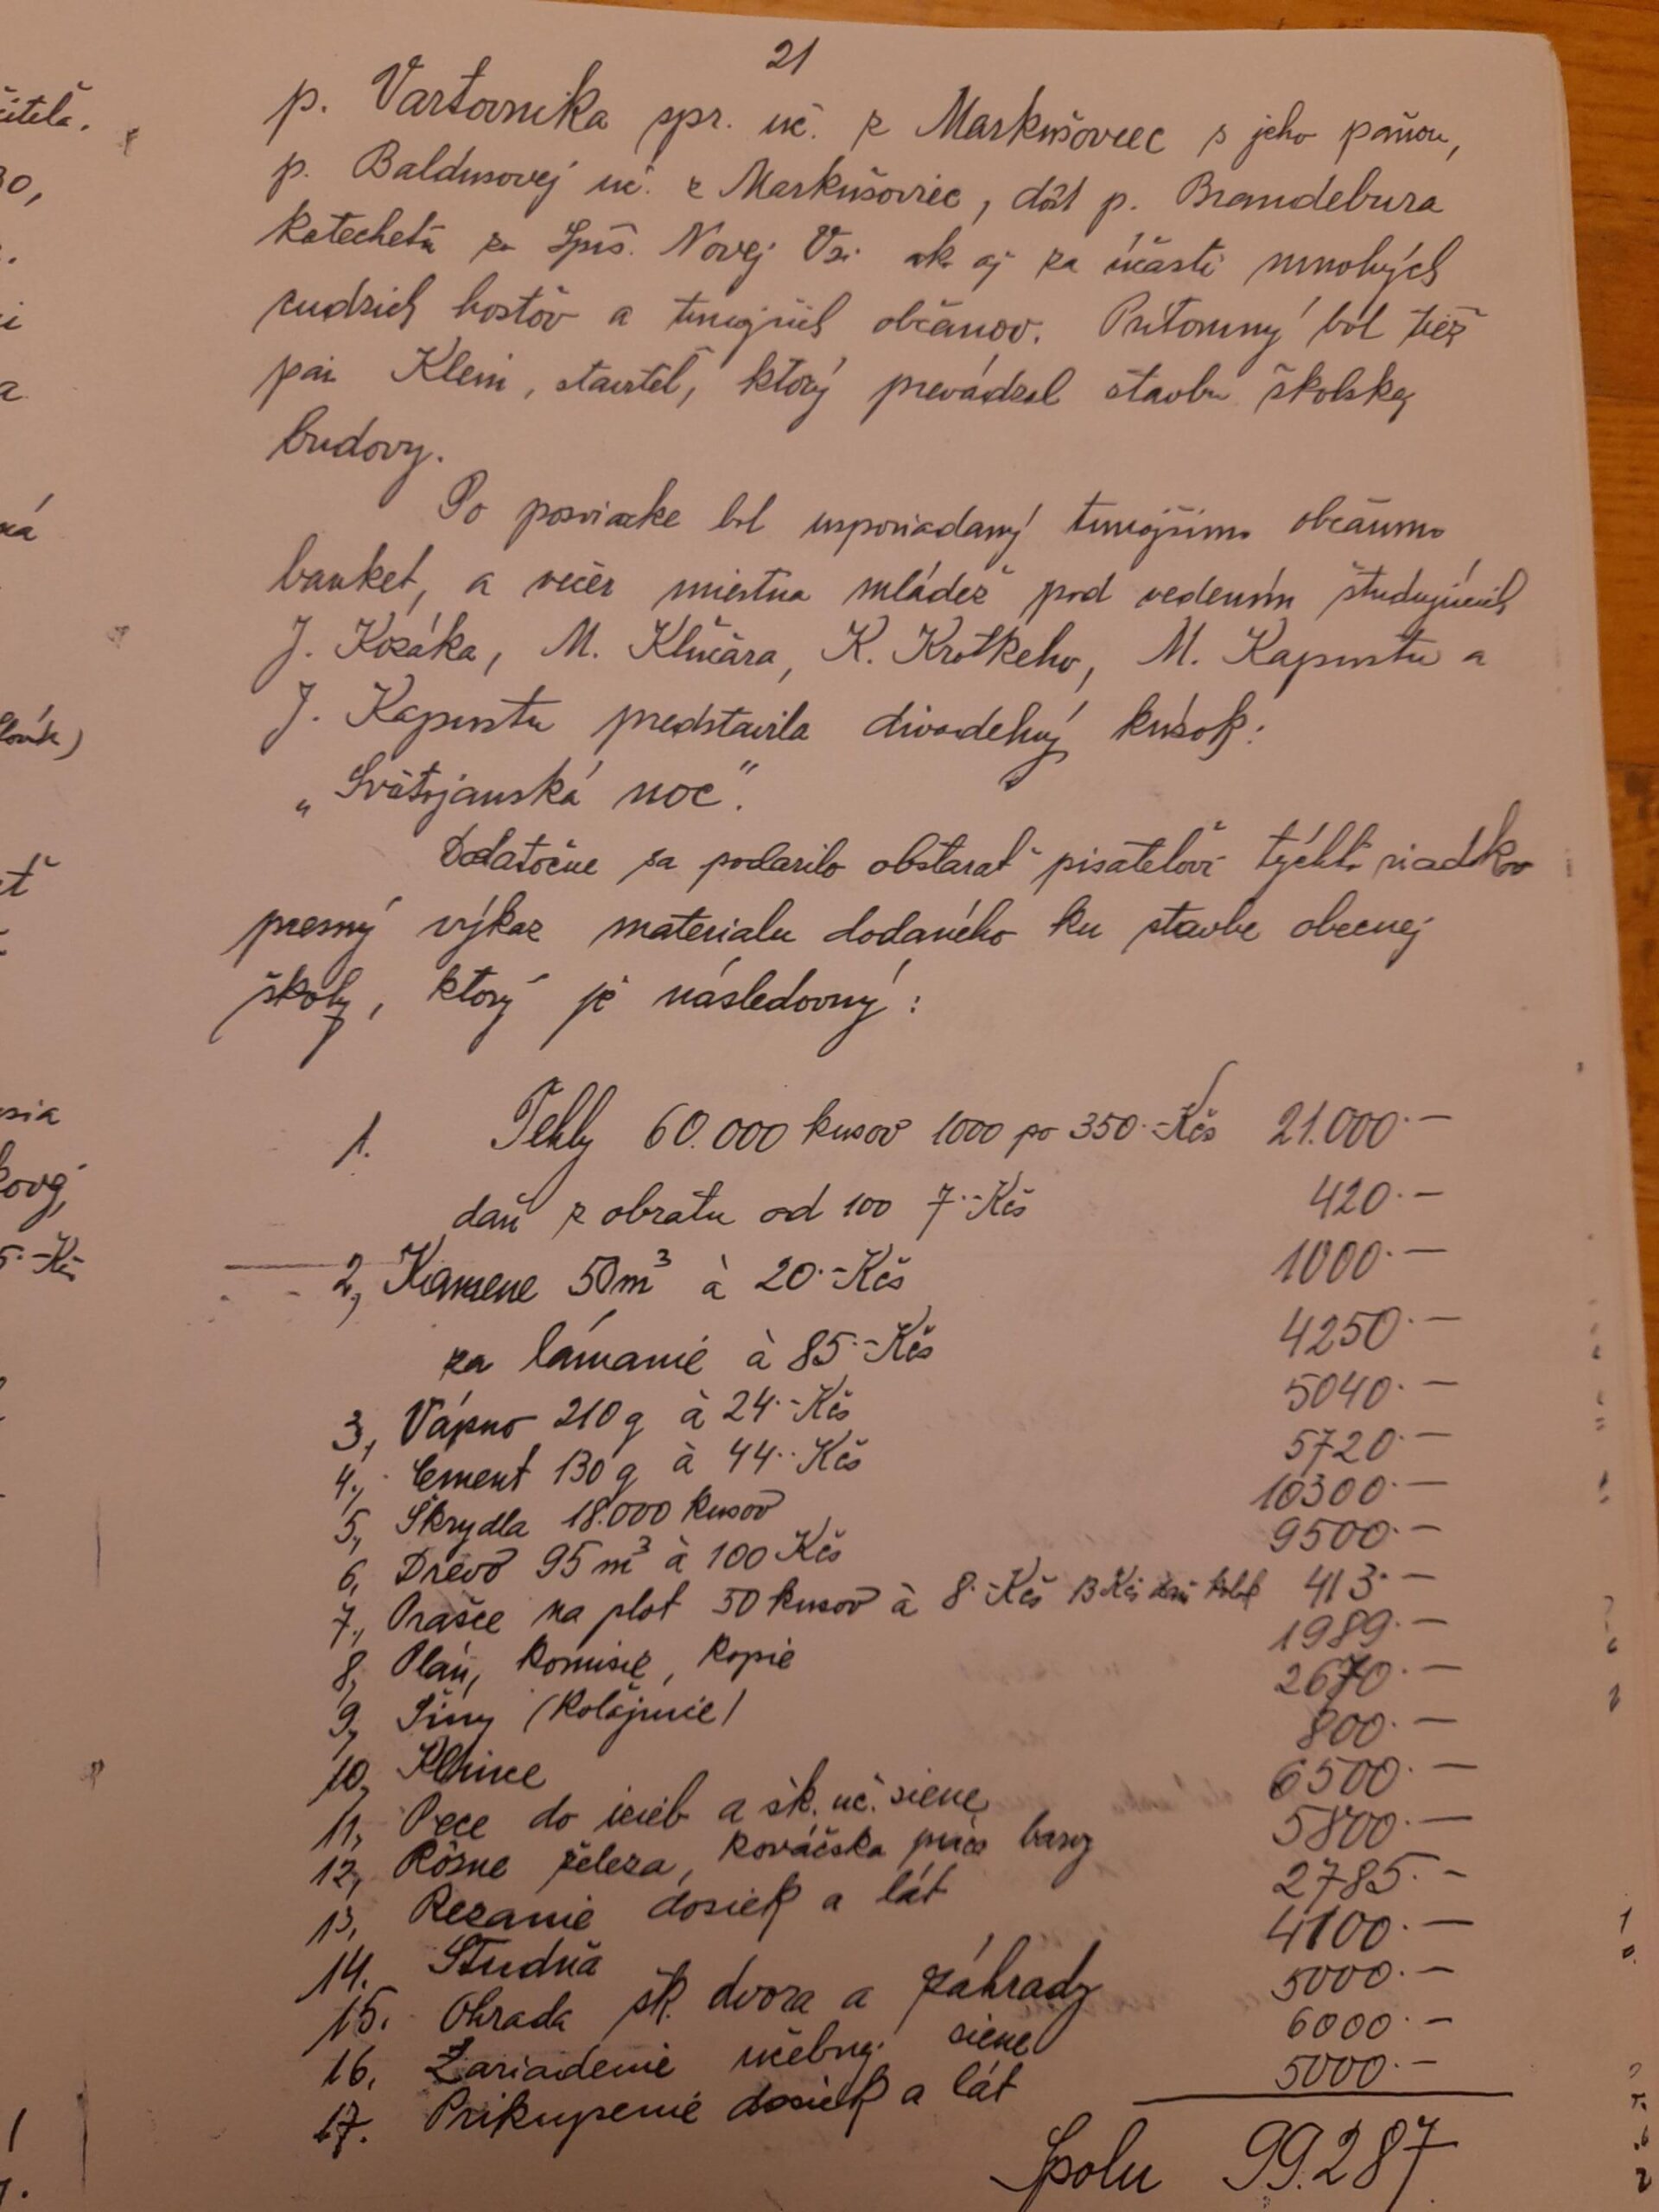 21
p. Vartovníka spr. uč. z Markušoviec s jeho paňou,
p. Baldusovej uč. z Markušoviec, dôst p. Brandebura
katecheta zo Spiš. Novej Vsi ak aj za účasti mnohých
cudzich hostôv a tunajších občanov. Prítomný bol tiež
pán Klein, staviteľ, ktorý prevádzal stavbu školskej
budovy.
Po posviacke bol usporiadaný tunajšími občanmi
banket, a večer miestna mládež pod vedením študujúcich
J. Kozáka, M. Kľučára, K. Krotkeho, M. Kapustu a
J. Kapustu predstavila divadelný kúsok:
„Svätojanská noc".
Dodatočne sa podarilo obstarať pisateľovi týchto riadkov
presný výkaz materialu dodaného ku stavbe obecnej
školy, ktorý je následovný:
1. Tehly 60.000 kusov 1000 po 350.-Kčs 21.000.-
daň z obratu od 100 7.-Kčs 420.-
2, Kamene 50m³ à 20.-Kčs 1000.-
za lámanie à 85.-Kčs 4250.-
3, Vápno 210 q à 24.-Kčs 5040.-
4., Cement 130 q à 44.-Kčs 5720.-
5, Škrydla 18.000 kusov 10300.-
6, Drevo 95 m³ à 100 Kčs 9500.-
7., Prašce na plot 50 kusov à 8.-Kčs 13 Kčs daň 413.-
8, Plán, komisie, kopie 1989.-
9, Šiny (Kolajnice) 2670.-
10, Klince 800.-
11, Pece do izieb a šk. uč. siene 6500.-
12, Rôzne železa, kováčska práca 5800.-
13, Rezanie dosiek a lát 2785.-
14. Studňa 4100.-
15. Ohrada šk. dvora a záhrady 5000.-
16, Zariadenie učebnej siene 6000.-
17. Prikupenie dosiek a lát 5000.-
Spolu 99.287